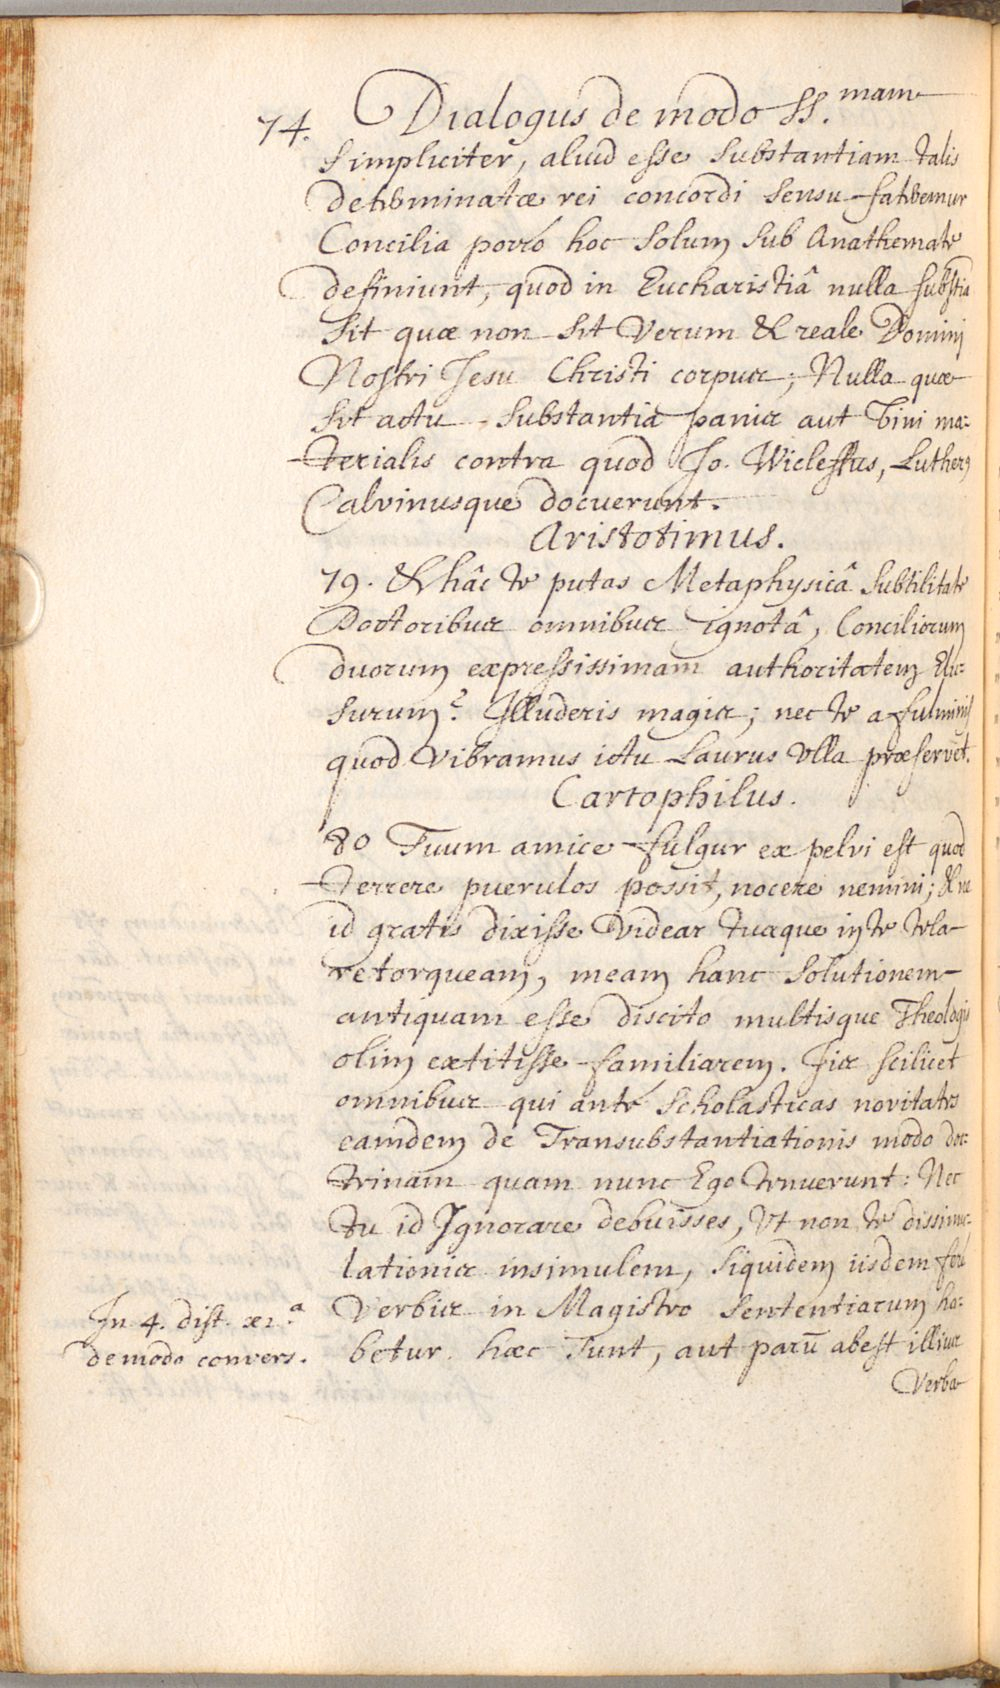 74. Dialogus de modo SS.mam
Simpliciter, aliud esse Substantiam talis
determinatæ rei concordi Sensu fatemur
Concilia porró hoc Solum Sub Anathemate
definiunt, quod in Eucharistiâ nulla Substia
Sit quæ non Sit Verum & reale Domini
Nostri Jesu Christi corpus; Nulla quæ
Sit actu Substantia panis aut Vini ma:
terialis contra quod Jo. Wicleffus, Lutherus
Calvinusque docuerunt.
Aristotimus.
79. & hâc te putas Metaphysicâ Subtilitate
Doctoribus omnibus ignotâ, Conciliorum
duorum expressissimam authoritatem Elu:
surum? Illuderis magis; nec te a fulminis
quod Vibramus ictu Laurus Ulla præservet.
Cartophilus.
80 Tuum amice fulgur ex pelvi est quod
terrere puerulos possit, nocere nemini; & ne
id gratis dixisse Videar tuaque in te tela
retorqueam, meam hanc Solutionem
antiquam esse discito multisque Theologis
olim extitisse familiarem. Jis scilicet
omnibus qui anté Scholasticas novitates
eamdem de Transubstantiationis modo doc:
trinam quam nunc Ego tenuerunt: Nec
tu id Ignorare debuisses, Ut non te dissimu:
lationis insimulem, Siquidem iisdem feré
Verbis in Magistro Sententiarum ha:
betur. hæc Sunt, aut parū abest illius
Verba
In 4. dist. xi.a
de modo convers.